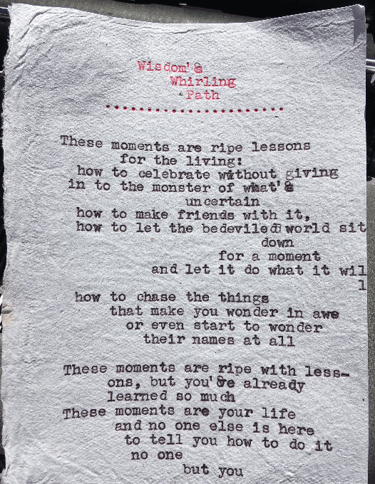 Wisdom's
Whirling
Path
These moments are ripe lessons
for the living:
how to celebrate without giving
in to the monster of what's
uncertain
how to make friends with it,
how to let the bedeviled world sit
down
for a moment
and let it do what it wil
l
how to chase the things
that make you wonder in awe
or even start to wonder
their names at all
These moments are ripe with less-
ons, but you've already
learned so much
These moments are your life
and no one else is here
to tell you how to do it
no one
but you